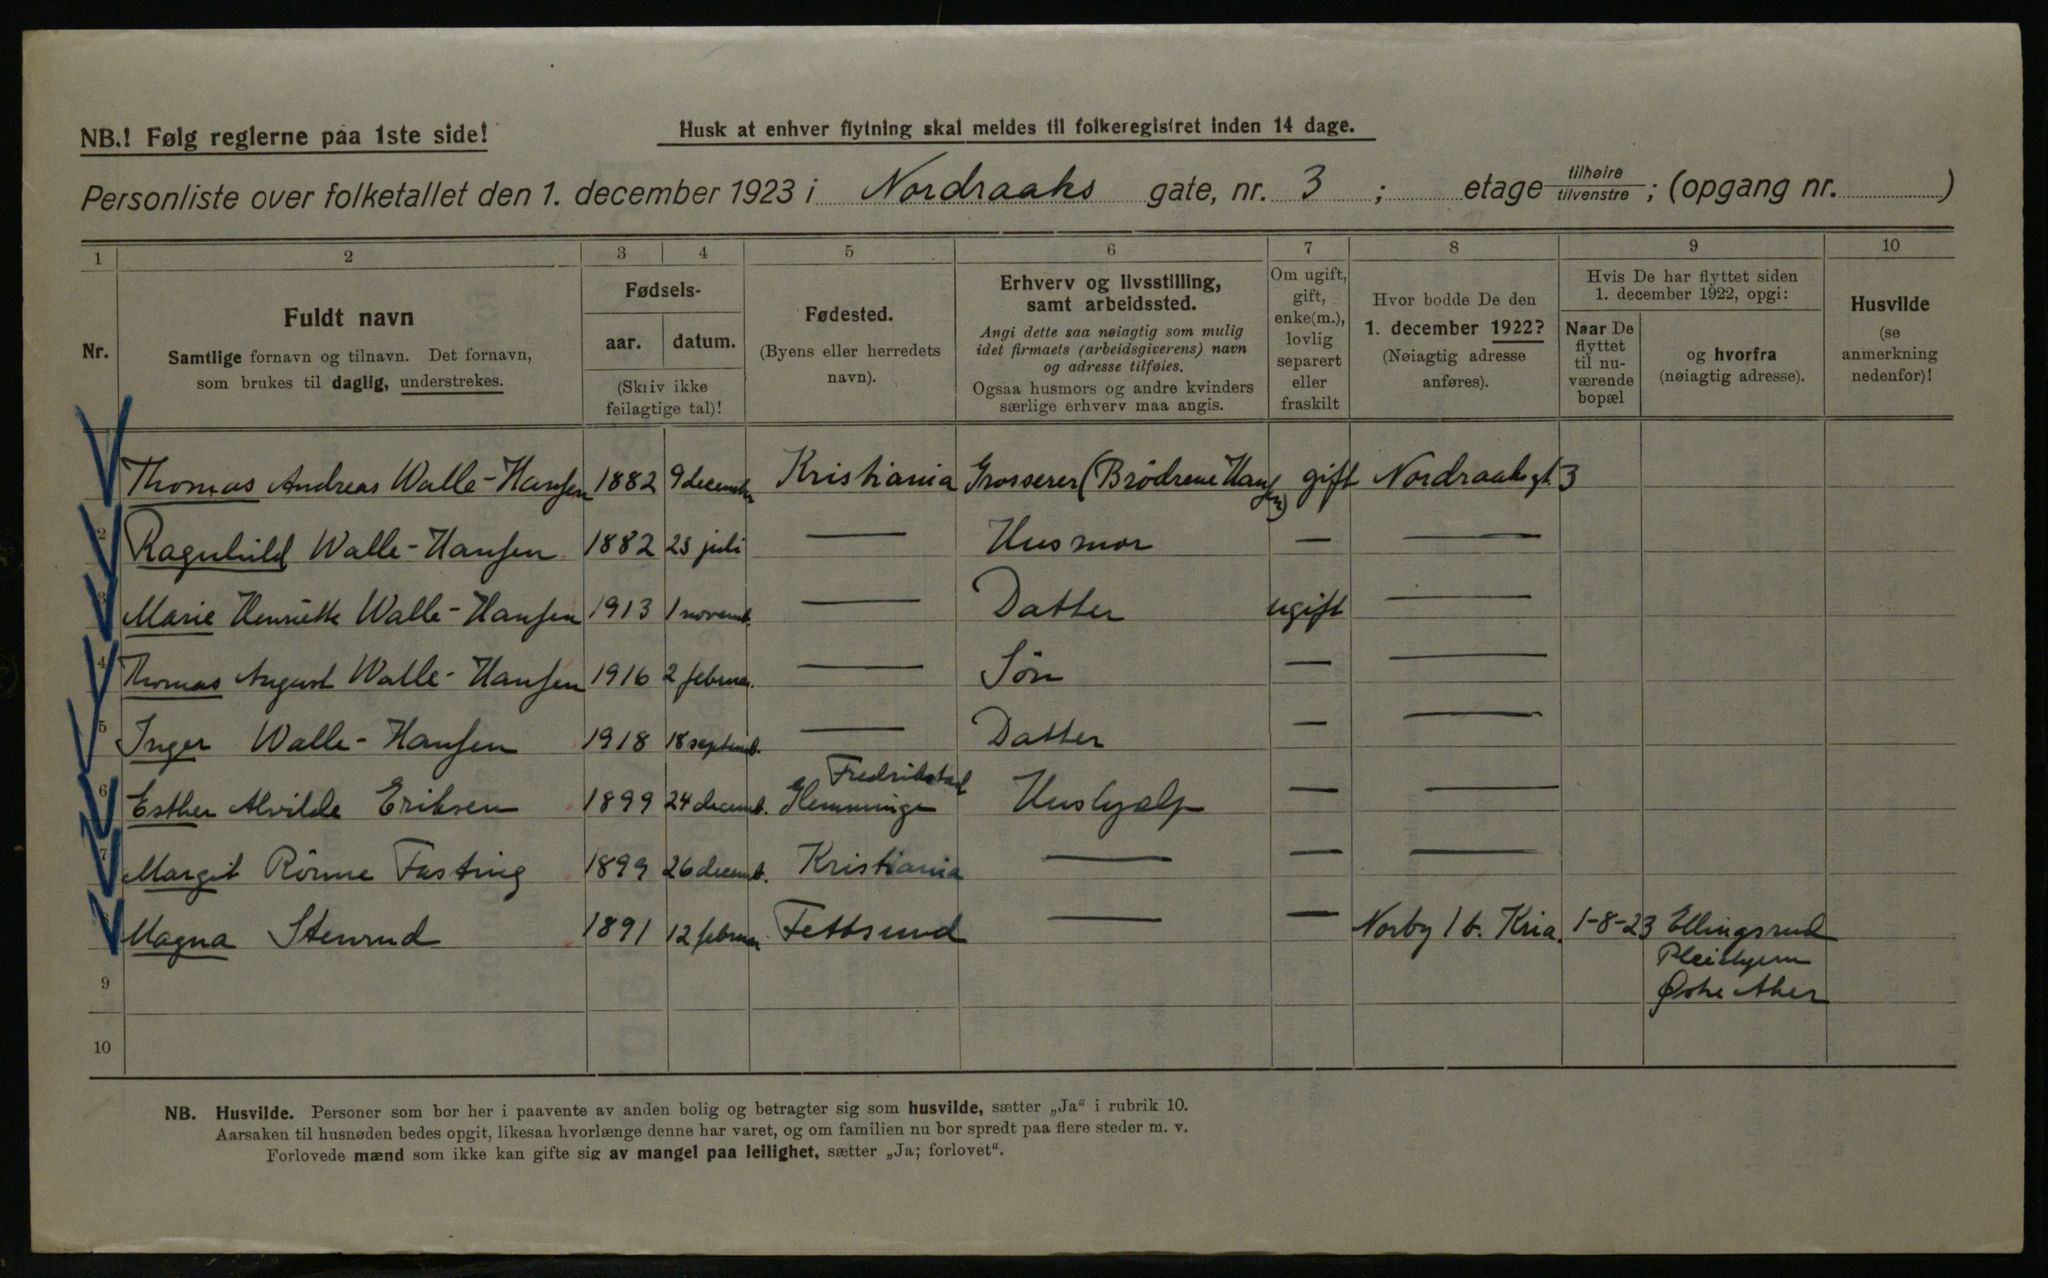 NB.! Følg reglerne paa 1ste side!
Husk at enhver flytning skal meldes til folkeregistret inden 14 dage.
Personliste over folketallet den 1. december 1923 i Nordraaks gate, nr. 3 ; etage tilhøire tilvenstre ; (opgang nr. )
1 2 3 4 5 6 7 8 9 10
Nr.
Fuldt navn
Samtlige fornavn og tilnavn. Det fornavn,
som brukes til daglig, understrekes.
Fødsels-
aar. datum.
(Skriv ikke
feilagtige tal)!
Fødested.
(Byens eller herredets
navn).
Erhverv og livsstilling,
samt arbeidssted.
Angi dette saa nøiagtig som mulig
idet firmaets (arbeidsgiverens) navn
og adresse tilføies.
Ogsaa husmors og andre kvinders
særlige erhverv maa angis.
Om ugift,
gift,
enke(m.),
lovlig
separert
eller
fraskilt
Hvor bodde De den
1. december 1922?
(Nøiagtig adresse
anføres).
Hvis De har flyttet siden
1. december 1922, opgi:
Naar De
flyttet
til nu-
værende
bopæl
og hvorfra
(nøiagtig adresse).
Husvilde
(se
anmerkning
nedenfor)!
Thomas Andreas Walle-Hansen 1882 9 december Kristiania Grosserer (Brødrene Hansen) gift Nordraaksgt. 3
2 Ragnhild Walle-Hansen 1882 25 juli — Husmor — —
3 Marie Henriette Walle-Hansen 1913 1 novemb. — Datter ugift —
4 Thomas August Walle-Hansen 1916 2 februar. — Søn — —
5 Inger Walle-Hansen 1918 18 septemb. — Datter — —
6 Esther Alvilde Eriksen 1899 24 decemb. Glemminge Fredrikstad Hushjælp — —
7 Margit Rönne Fasting 1899 26 decemb. Kristiania — — —
8 Magna Stenrud 1891 12 februar Fettsund — — Norby 1 b. Kria. 1-8-23 Ellingsrud
Pleiehjem
9 Østre Aker
10
NB. Husvilde. Personer som bor her i paavente av anden bolig og betragter sig som husvilde, sætter „Ja“ i rubrik 10.
Aarsaken til husnøden bedes opgit, likesaa hvorlænge denne har varet, og om familien nu bor spredt paa flere steder m. v.
Forlovede mænd som ikke kan gifte sig av mangel paa leilighet, sætter „Ja; forlovet“.